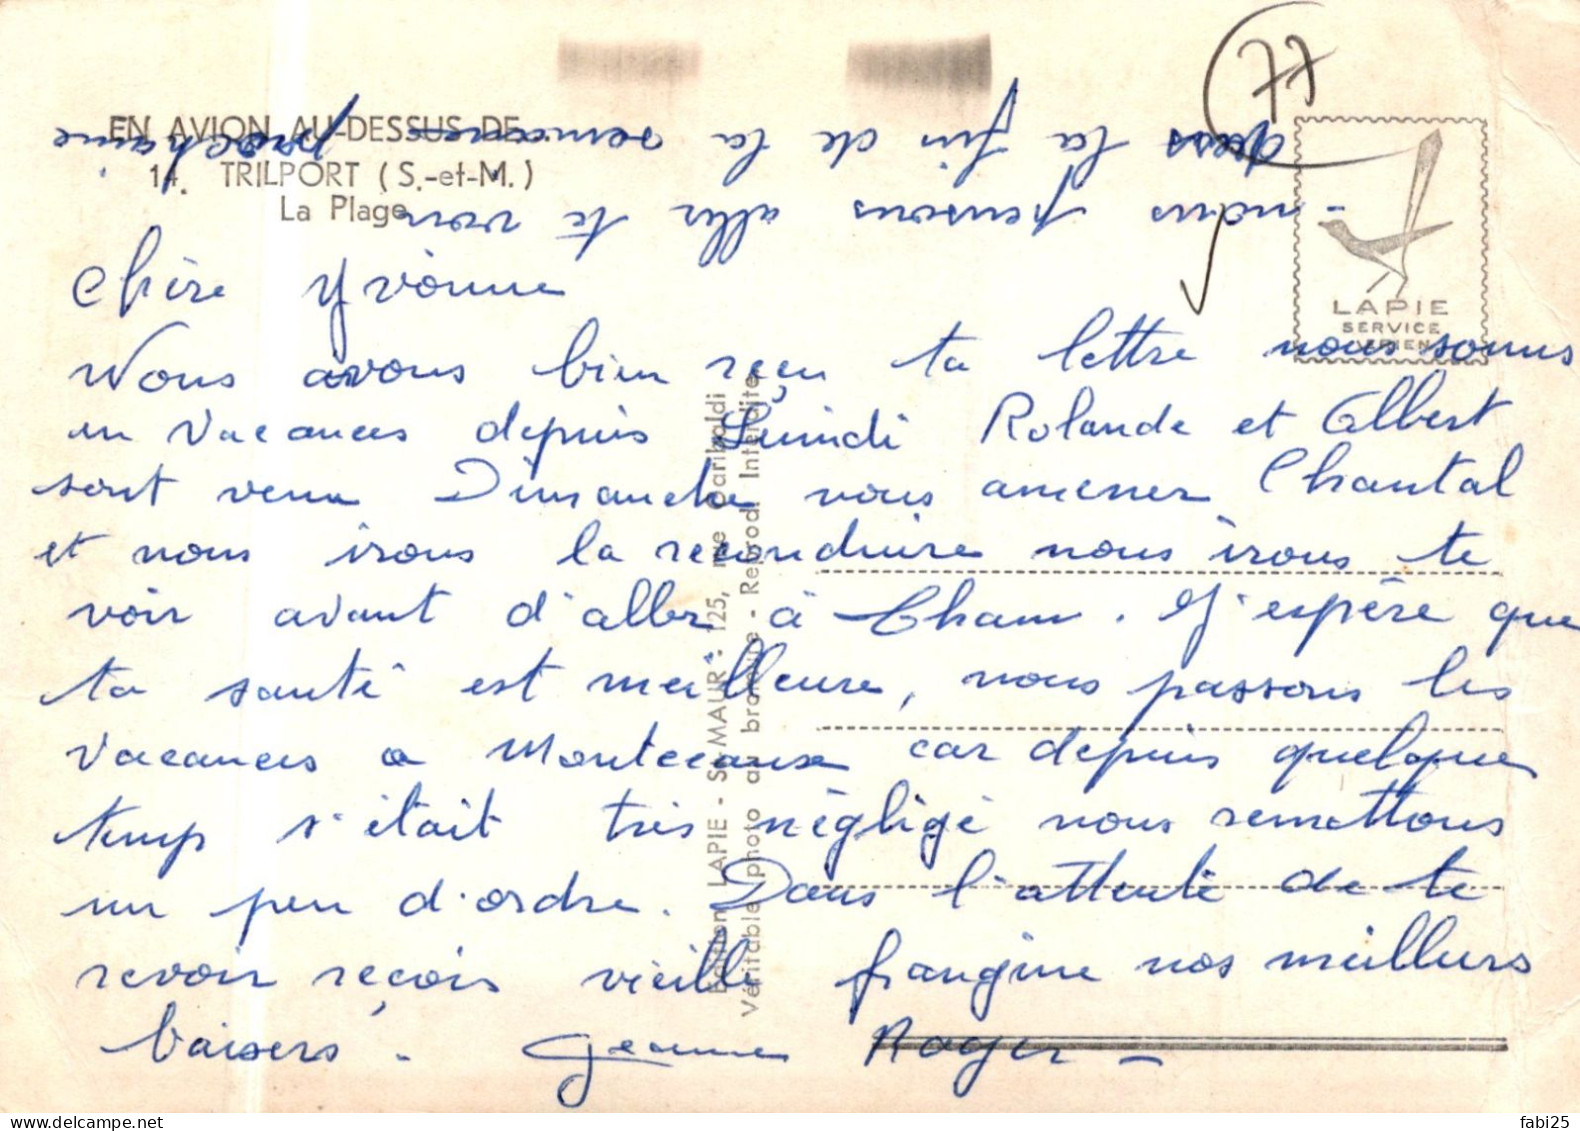 77
EN AVION AU-DESSUS DE...
14. TRILPORT (S.-et-M.)
La Plage
LAPIE
SERVICE
AÉRIEN
Chère Yvonne
Nous avons bien reçu ta lettre nous sommes
en vacances depuis Lundi Rolande et Albert
sont venu Dimanche nous amener Chantal
et nous irons la reconduire nous irons te
voir avant d'aller à Cham. J'espère que
ta santé est meilleure, nous passons les
vacances a Montceaux car depuis quelque
temp s'était très négligé nous remettons
un peu d'ordre. Dans l'attente de te
revoir reçois vieille frangine nos meilleurs
baisers. Jeanne Roger -
- nous pensons aller te voir
vers la fin de la semaine prochaine.
Edition LAPIE - St-MAUR : 125, rue Garibaldi
Véritable photo au bromure - Reprod. Interdite
fabi25